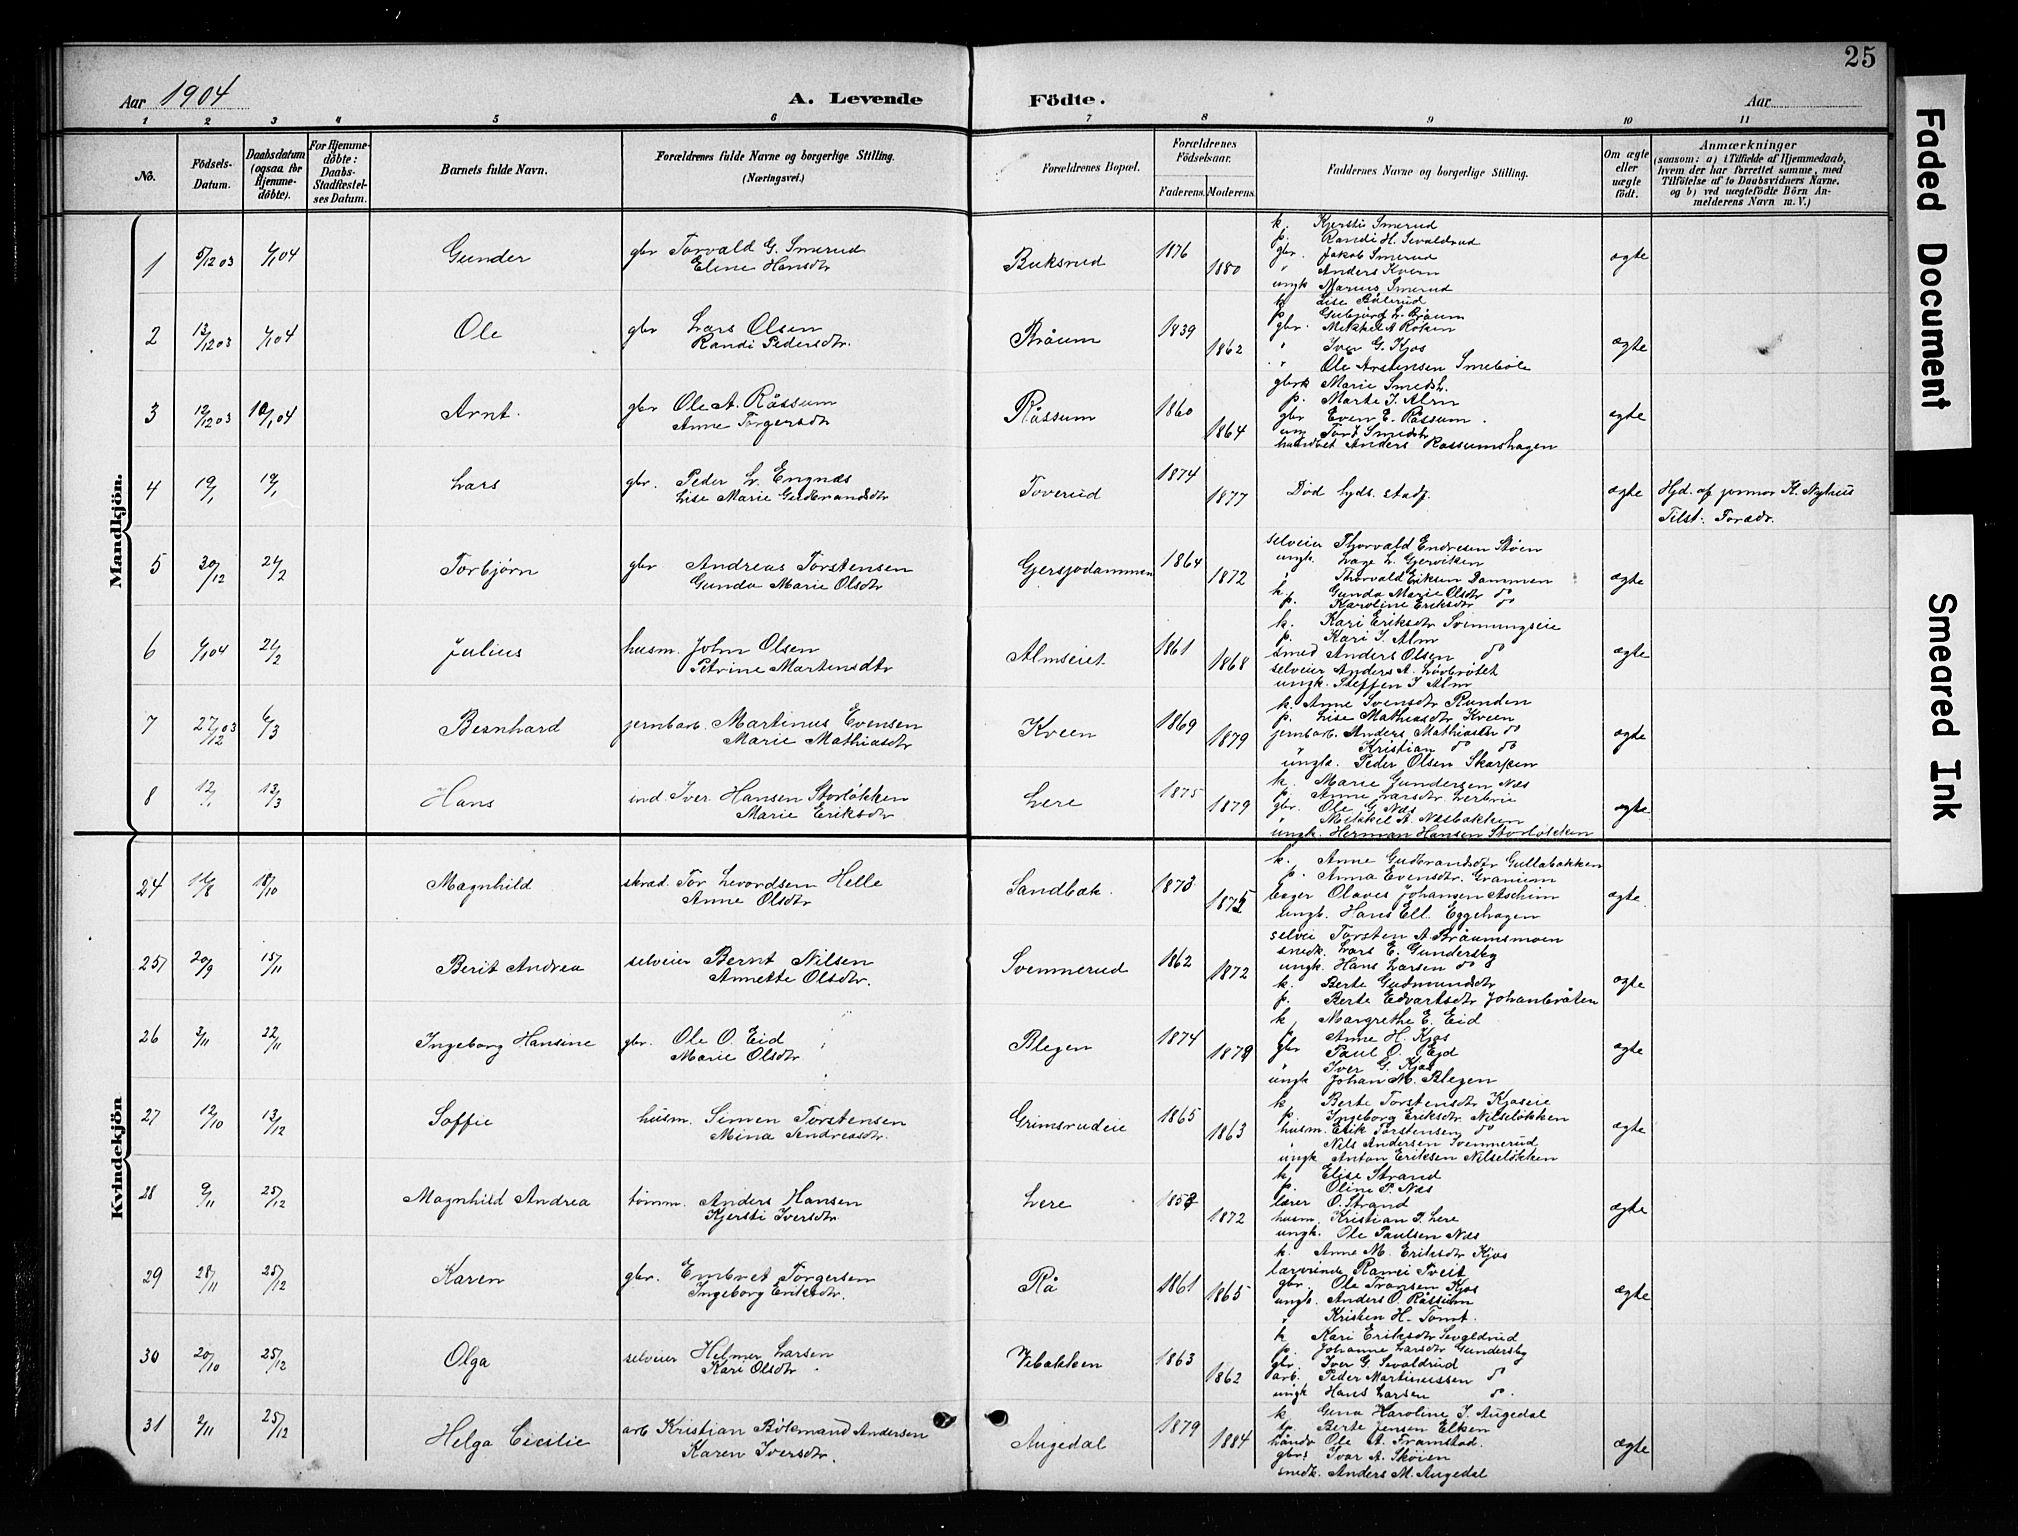 25
Aar 1904
A. Levende
Födte.
Aar
1 2 3 4 5 6 7 8 9 10 11
No.
Födsels-Datum.
Daabsdatum (ogsaa for Hjemme-döbte).
For Hjemme-döbte: Daabs-Stadfæstel-ses Datum.
Barnets fulde Navn.
Forældrenes fulde Navne og borgerlige Stilling.
(Næringsvei.)
Forældrenes Bopæl.
Forældrenes Födselsaar.
Faderens. Moderens.
Faddernes Navne og borgerlige Stilling.
Om ægte eller uægte födt.
Anmærkninger
(saasom: a) i Tilfælde af Hjemmedaab, hvem der har forrettet samme, med Tilföielse af to Daabsvidners Navne, og b) ved uægtefödte Börn Anmelderens Navn m. V.)
Mandkjön.
1 5/12 03 6/1 04 Gunder gbr Torvald G. Smerud
Eline Hansdtr
Buksrud 1876 1880
k. Kjersti Smerud
p. Randi H. Sevaldrud
gbr. Jakob Smerud
" Anders Kvern
ungk Marius Smerud
ægte
2 13/12 03 6/1 04 Ole gbr Lars Olsen
Randi Pedersdtr.
Bråum 1839 1862
k Lise Bålerud
p. Gubjørg L. Bråum
gbr. Mikkel A Roken
" Iver G. Kjos
" Ole Arstensen Smebøle
ægte
3 12/12 03 10/1 04 Arnt. gbr Ole A. Råssum
Anne Torgersdtr
Råssum 1860 1864
gbrk Marie Smedsh.
p. Marte I. Alm
gbr Even E. Råssum.
um Tord Smedsh
Anders Rossumshagen
ægte
4 19/1 19/1 Lars gbr. Peder L. Engnæs
Lise Marie Gudbrandsdtr
Toverud 1874 1877
Død lyds. stadf.
ægte Hjd. af jormor K. Nyhus
Tilst: Forældr.
5 30/12 21/2 Torbjørn gbr Andreas Torstensen
Gunda Marie Olsdtr
Gersjodammen 1864 1872
selveier Thorvald Endresen Støen
ungk. Lage L. Gjerviken
" Thorvald Eriksen Dammen
k. Gunda Marie Olsdtr do
p. Karoline Eriksdtr do
ægte
6 6/1 04 21/2 Julius husm. John Olsen
Petrine Martensdtr
Almseiet 1861 1868
k. Kari Eriksdtr Svenungseie
p. Kari I. Alm
smed Anders Olsen do
selveier Anders A. Løvbrøtet
ungk. Steffen I Alm
ægte
7 27/12 03 6/3 Bernhard jernbarb. Martinus Evensen
Marie Mathiasdtr
Kveen 1869 1879
k. Anne Svensdtr Runden
p. Lise Mathiasdtr Kveen
jernbarb. Anders Mathiassen do
" Kristian do do
ungk. Peder Olsen Skarpen
ægte
8 12/1 13/3 Hans ind. Iver Hansen Storløkken
Marie Eriksdtr
Lere 1875 1879
k. Marie Gundersen Næs
p. Anne Larsdtr. Lerbrie
gbr. Ole G. Næs
" Mikkel A. Næsbakken
ungk. Herman Hansen Storløkken
ægte
Kvindekjön
24 18/10 Magnhild skræd. Tor Levordsen Helle
Anne Olsdtr
Sandbæk. 1873 1875
k. Anne Gudbrandsdtr Gullabakken
p. Anna Evensdtr. Granum
bager Olaves Johansen Aschim
ungk. Hans Ell. Eggehagen
ægte.
25 20/9 15/11 Berit Andrea selveier Bernt Nilsen
Annette Olsdtr.
Svennerud 1862 1872
selvei Torsten A Bråumsmoen
snedk. Lars E. Gundersby
ungk. Hans Larsen do
k. Berte Gudmundsdtr
p. Berte Edvartsdtr Johanbråten
ægte
26 3/11 22/11 Ingeborg Hansine gbr. Ole O. Eid
Marie Olsdtr
Blegen 1874 1879
k Margrethe E. Eid
p. Anne H. Kjos
gbr Paul O. Eid
" Iver G. Kjos
ungk Johan M. Blegen
ægte
27 12/10 13/12 Soffie husm. Simen Torstensen
Mina Andreasdtr.
Grimsrudeie 1865 1863
k Berte Torstensdtr Kjoseie
p. Ingeborg Eriksdtr Nilseløkken
husm. Erik Torstensen do
" Nils Andersen Svennerud
ungk Anton Eriksen Nilseløkken
ægte
28 9/11 25/12 Magnhild Andrea tømm. Anders Hansen
Kjersti Iversdtr
Lere 1872
k. Elise Strand
p. Oline P. Næs
lærer O. Strand
husm. Kristian P. Lere
ungk. Ole Paulsen Næs
ægte
29 28/11 25/12 Karen gbr. Embret Torgersen
Ingeborg Eriksdtr.
Rå 1861 1865
k. Anne M. Eriksdtr Kjos
lærerinde Tveit
gbr. Ole Fransen Kjos
ungk. Anders O. Råssum
" Kristen H. Tomt.
ægte
30 20/10 25/12 Olga selveier Helmer Larsen
Kari Olsdtr
Vebakken 1863 1862
k Kari Eriksdtr Sevaldrud
p. Johanne Larsdtr Gundersby
gbr. Iver G. Sevaldrud
arb. Peder Martinussen do
ungk Hans Larsen do.
ægte
31 2/11 25/12 Helga Cecilie arb Kristian Bökmand Andersen
Karen Iversdtr.
Augedal 1879 1884
k Gina Karoline I. Augedal
p. Berte Jensen Elken
Ole A. Framstad.
gbrs Ivar A. Skøien
snedk. Anders M. Augedal
ægte
Faded Document
Smeared Ink